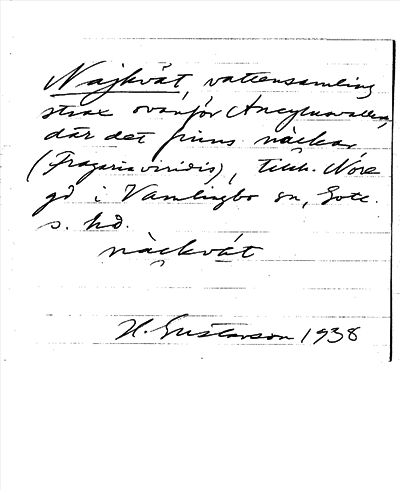 Najkvát, vattensamling
strax ovanför Ancylusvallen,
där det finns näckar
(Fragaria viridis), tillh. Nore
gd i Vamlingbo sn, Gotl.
s. hd.
näckvát
H. Gustavson 1938